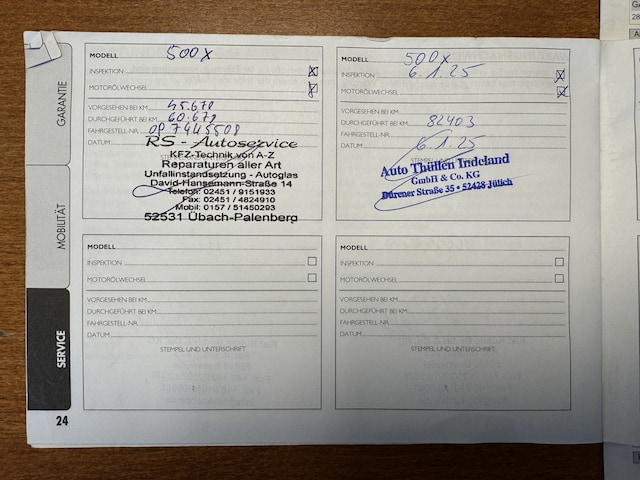 GARANTIE
MOBILITÄT
SERVICE
24
MODELL 500X
INSPEKTION
MOTORÖLWECHSEL
VORGESEHEN BEI KM 45.678
DURCHGEFÜHRT BEI KM 60.678
FAHRGESTELL-NR.
DATUM
RS - Autoservice
KFZ-Technik von A-Z
Reparaturen aller Art
Unfallinstandsetzung - Autoglas
David-Hansemann-Straße 14
Telefon: 02451 / 9151933
Fax: 02451 / 4824910
Mobil: 0157 / 51450293
52531 Übach-Palenberg
MODELL 500X
INSPEKTION 6.1.25
MOTORÖLWECHSEL
VORGESEHEN BEI KM
DURCHGEFÜHRT BEI KM 82403
FAHRGESTELL-NR.
DATUM 6.1.25
Auto Thüllen Indeland
GmbH & Co. KG
Dürener Straße 35 • 52428 Jülich
MODELL
INSPEKTION
MOTORÖLWECHSEL
VORGESEHEN BEI KM
DURCHGEFÜHRT BEI KM
FAHRGESTELL-NR.
DATUM
STEMPEL UND UNTERSCHRIFT
MODELL
INSPEKTION
MOTORÖLWECHSEL
VORGESEHEN BEI KM
DURCHGEFÜHRT BEI KM
FAHRGESTELL-NR.
DATUM
STEMPEL UND UNTERSCHRIFT